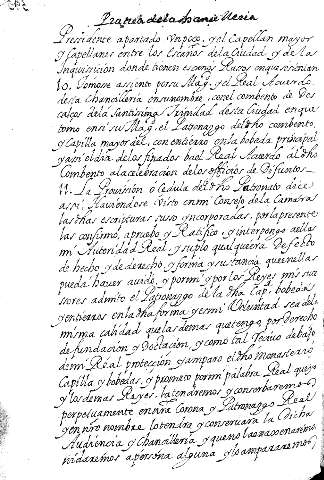 Presidente apartado Un poco, y el Capellan mayor
y Capellanes entre los Escaños de la Ciudad y de la
Inquisicion donde tienen escaños Rasos en que se sientan
10. Tomose asiento por su Mag. y el Real Acuerdo
desta Chancilleria en su nombre, con el combento de Des
calços de la Santissima Trinidad desta Ciudad en que
tomo en si su Mag. el Patronazgo del dho combento,
y Capilla mayor del, con entierro en la bobeda principal
y assi el dia de los finados ba el Real Acuerdo al dho
Combento a la celebracion de los officios de Difuntos.
11. La Provission o Cedula del dho Patronato dice
assi. Haviendose visto en mi Consejo de la Camara
las dhas escripturas suso incorporadas, por la presente
las confirmo, apruebo y Ratifico, y interpongo a ellas
mi Autoridad Real, y suplo qualquiera defecto
de hecho y de derecho y forma y sustancia que en ellas
pueda haver avido, y por mi y por los Reyes mis su
cesores admito el Patronazgo de la dha Cap. bobeda
y entierros en la dha forma, y es mi Voluntad sea de la
misma calidad que las demas que tengo por derecho
de fundacion y Dotacion, y como tal Tomo debajo
de mi Real protección y amparo el dho Monasterio
Capilla y bobedas, y prometo por mi palabra Real que yo
y los demas Reyes la tendremos y conservaremos
perpetuamente en mi Corona y Patronazgo Real
y en mi nombre lo tendra y conservara la Dicha
Audiencia y Chancilleria, y que no la
daremos a persona alguna y lo ampararemos